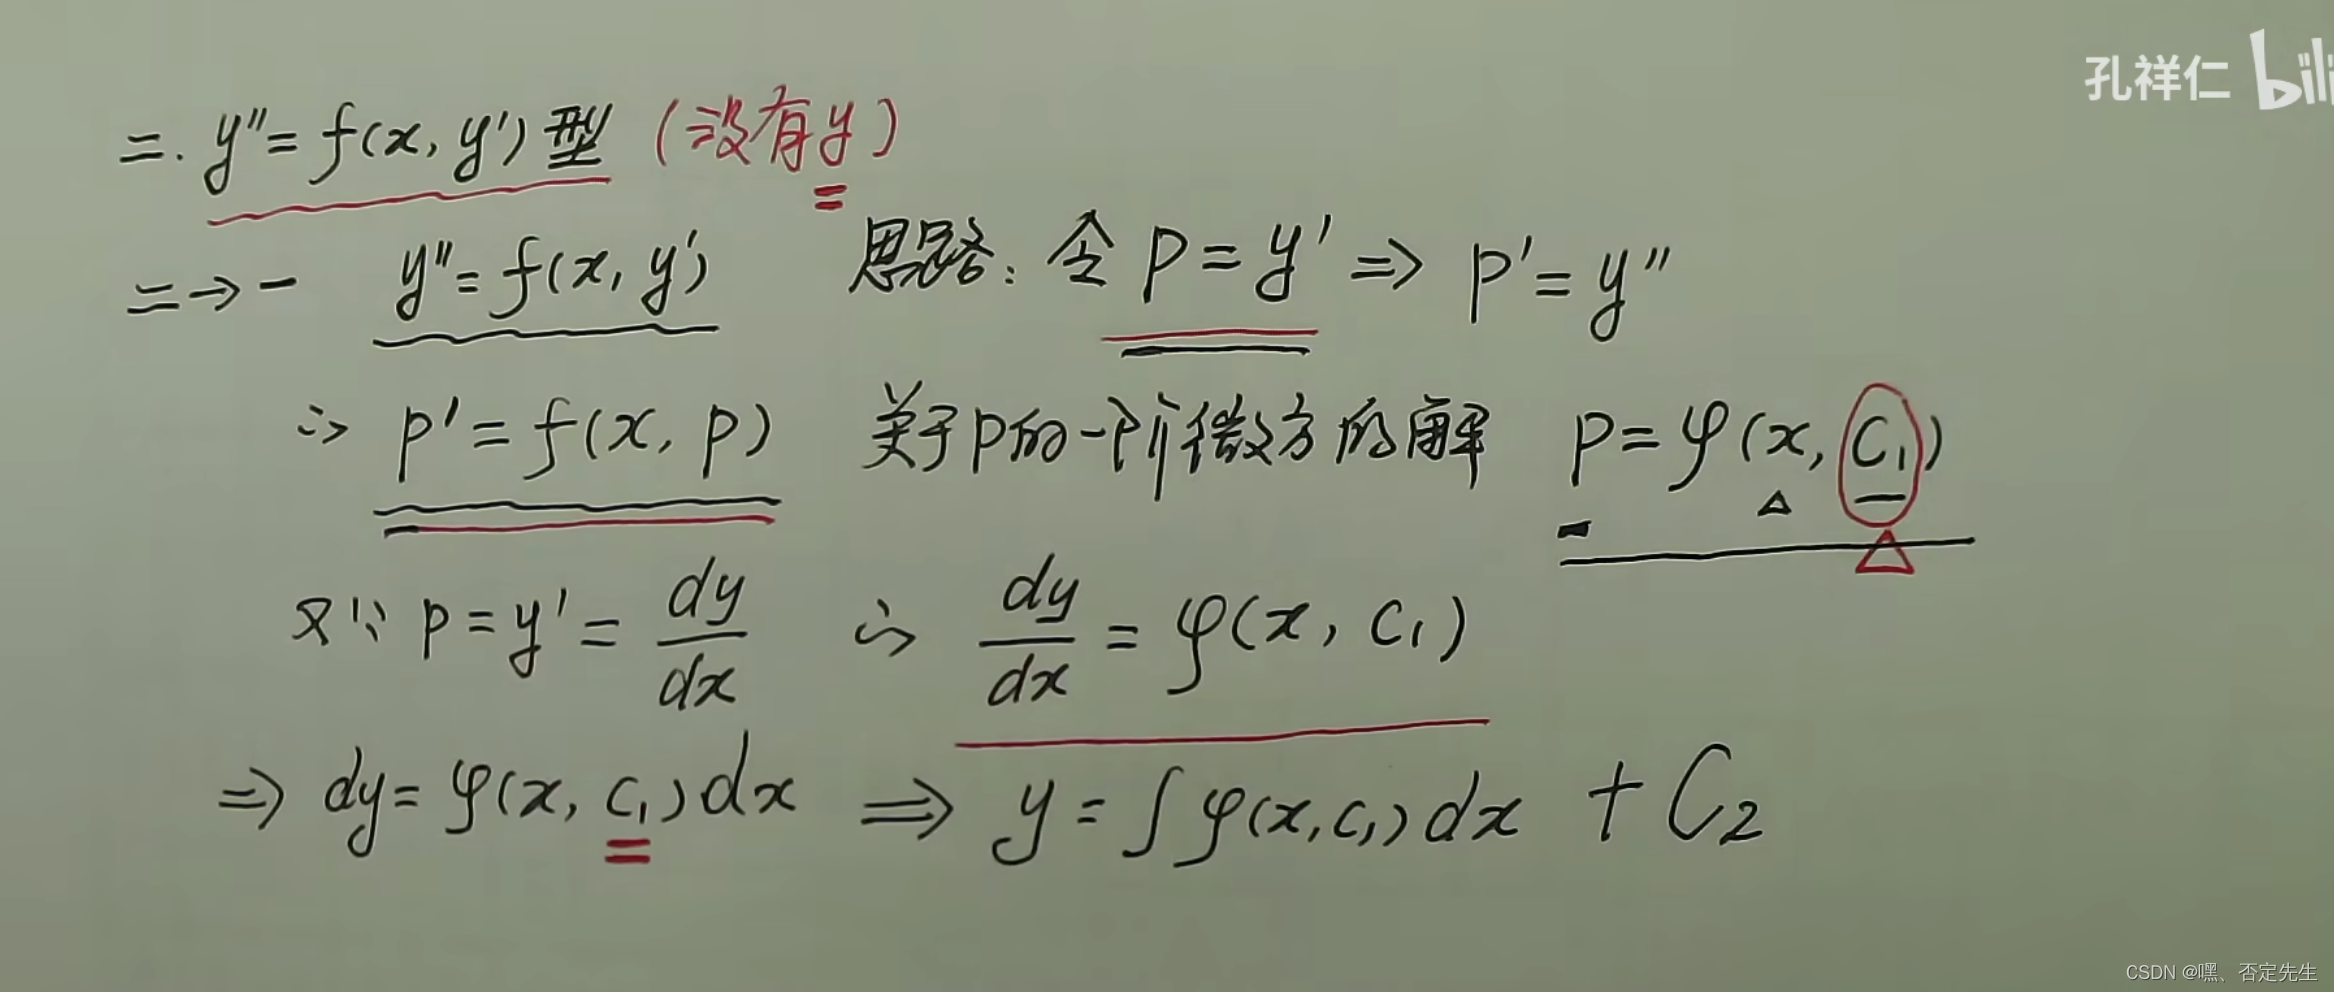 孔祥仁 bili
二. y″=f(x, y′)型 (没有y)
二→一 y″=f(x, y′) 思路: 令 p=y′ ⇒ p′=y″
∴ p′=f(x, p) 关于p的一阶微方的解 p=φ(x, C₁)
又∵ p=y′=dy/dx ∴ dy/dx=φ(x, C₁)
⇒ dy=φ(x, C₁)dx ⇒ y=∫φ(x,C₁)dx + C₂
CSDN @嘿、否定先生